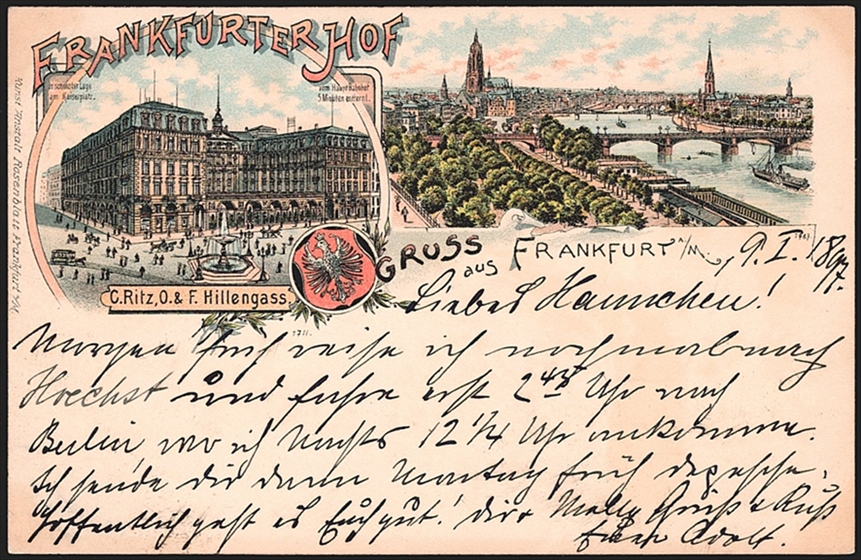 FRANKFURTER HOF
In schönster Lage
am Kaiserplatz.
vom Haupt Bahnhof
5 Minuten entfernt.
Kunst-Anstalt Rosenblatt Frankfurt a/M.
C. Ritz, O. & F. Hillengass.
GRUSS aus FRANKFURT a/M., 9. I. 189
17.
Liebes Hannchen!
Morgen früh reise ich nochmal nach
Hoechst und fahre erst 2 Uhr nach
Berlin wo ich Nachts 12 1/4 Uhr ankomme.
Ich sende dir dann Montag früh depesche.
Hoffentlich geht es Euch gut! Gruß & Kuß
Euer Adolf.